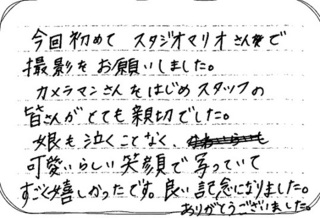 今回初めて スタジオマリオさんで
撮影をお願いしました。
カメラマンさんをはじめスタッフの
皆さんがとても親切でした。
娘も泣くことなく、
可愛いらしい笑顔で写っていて
すごく嬉しかったです。良い記念になりました。
ありがとうございました。